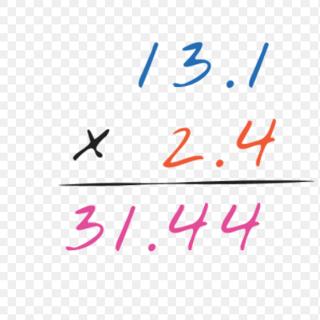 13.1
× 2.4
31.44